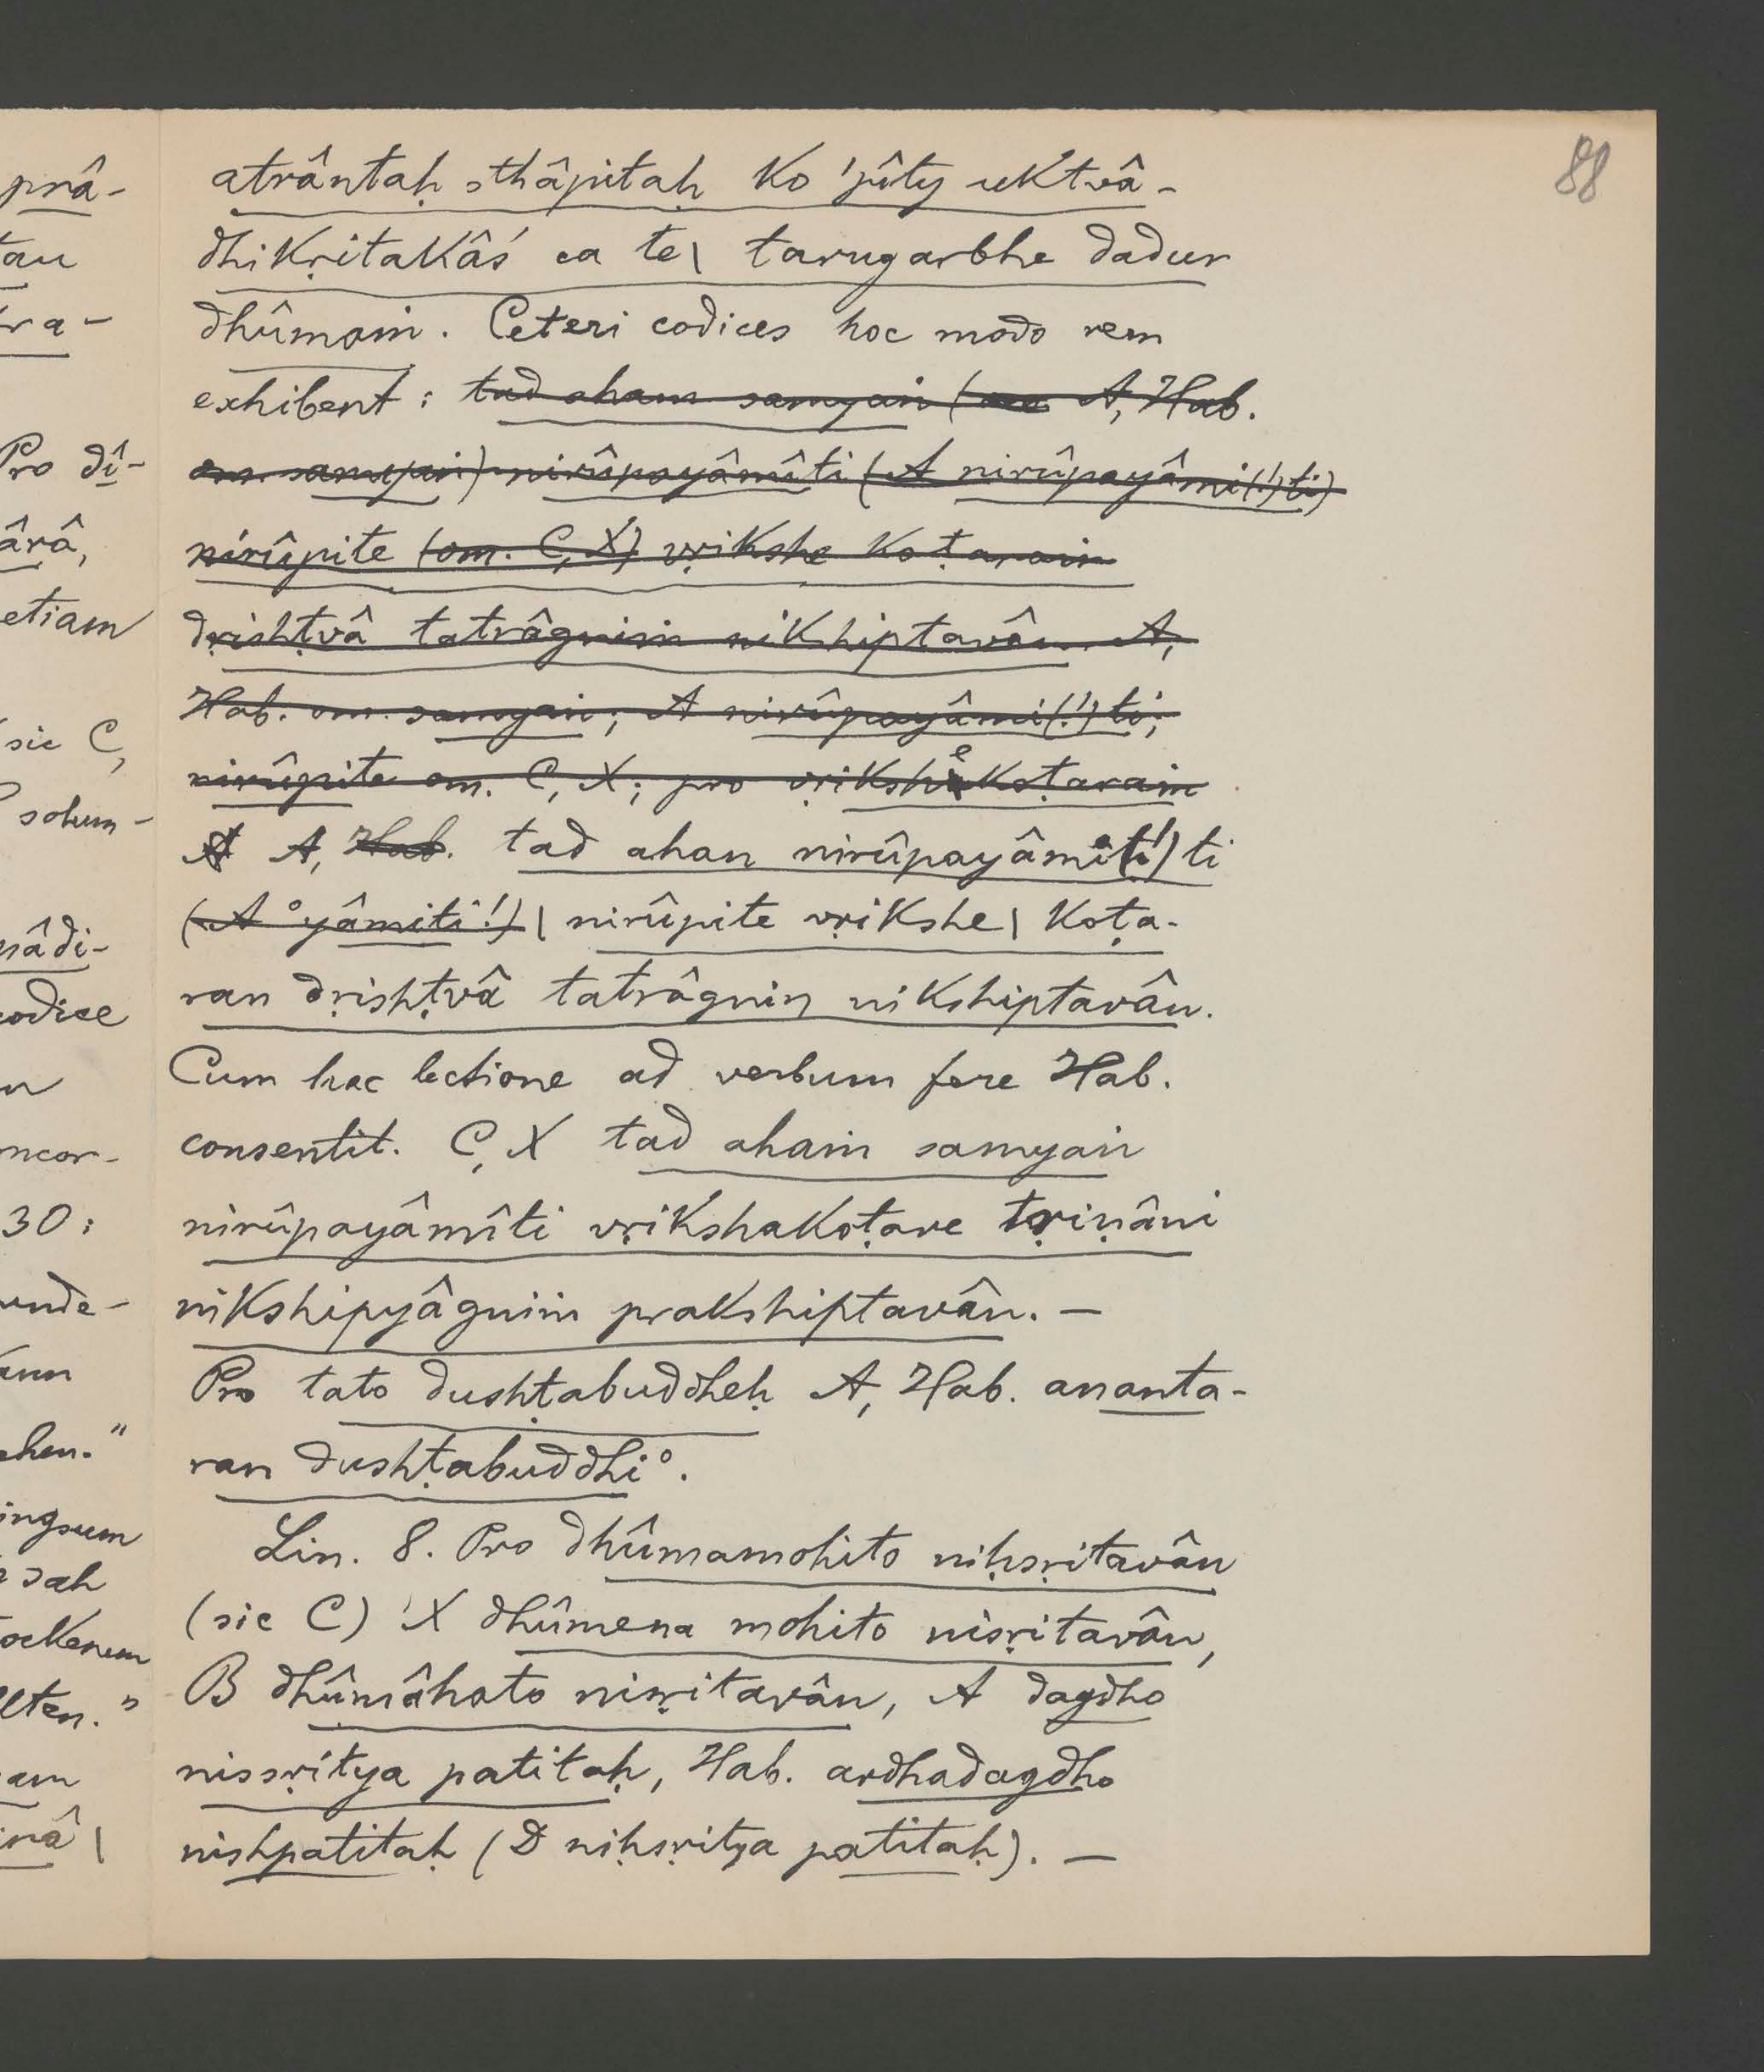 88
atrântaḥ sthâpitaḥ ko 'pîty uktvâ-
dhikṛitakâś ca te| tarugarbhe dadur
dhûmaṁ. Ceteri codices hoc modo rem
exhibent: tad aham samyaṅ ( A, Hab.
om. samyaṅ) nirûpayâmîti (A nirûpayâmi(!)ti)
nirûpite (om. C, X) vṛikshe koṭaraṁ
dṛishṭvâ tatrâgniṁ nikshiptavân. A,
Hab. om. samyaṅ; A nirûpayâmi(!)ti;
nirûpite om. C, X; pro vṛikshekoṭaraṁ
A A, Hab. tad ahan nirûpayâmi(!)ti
(A °yâmiti!)| nirûpite vṛikshe| koṭa-
ran dṛishṭvâ tatrâgnin nikshiptavân.
Cum hac lectione ad verbum fere Hab.
consentit. C, X tad ahaṁ samyaṅ
nirûpayâmîti vṛikshakoṭare tṛiṇâni
nikshipyâgniṁ prakshiptavân. —
Pro tato dushṭabuddheḥ A, Hab. ananta-
ran dushṭabuddhi°.
Lin. 8. Pro dhûmamohito niḥsṛitavân
(sic C) X dhûmena mohito nisṛitavân,
B dhûmâhato nisṛitavân, A dagdho
nissṛitya patitaḥ, Hab. ardhadagdho
nishpatitaḥ (D niḥsṛitya patitaḥ). —
prâ-
tau
tra-
Pro dî-
ârâ,
etiam
sic C,
solum-
nâdi-
codice
30:
kann
ehen."
sah
lten."